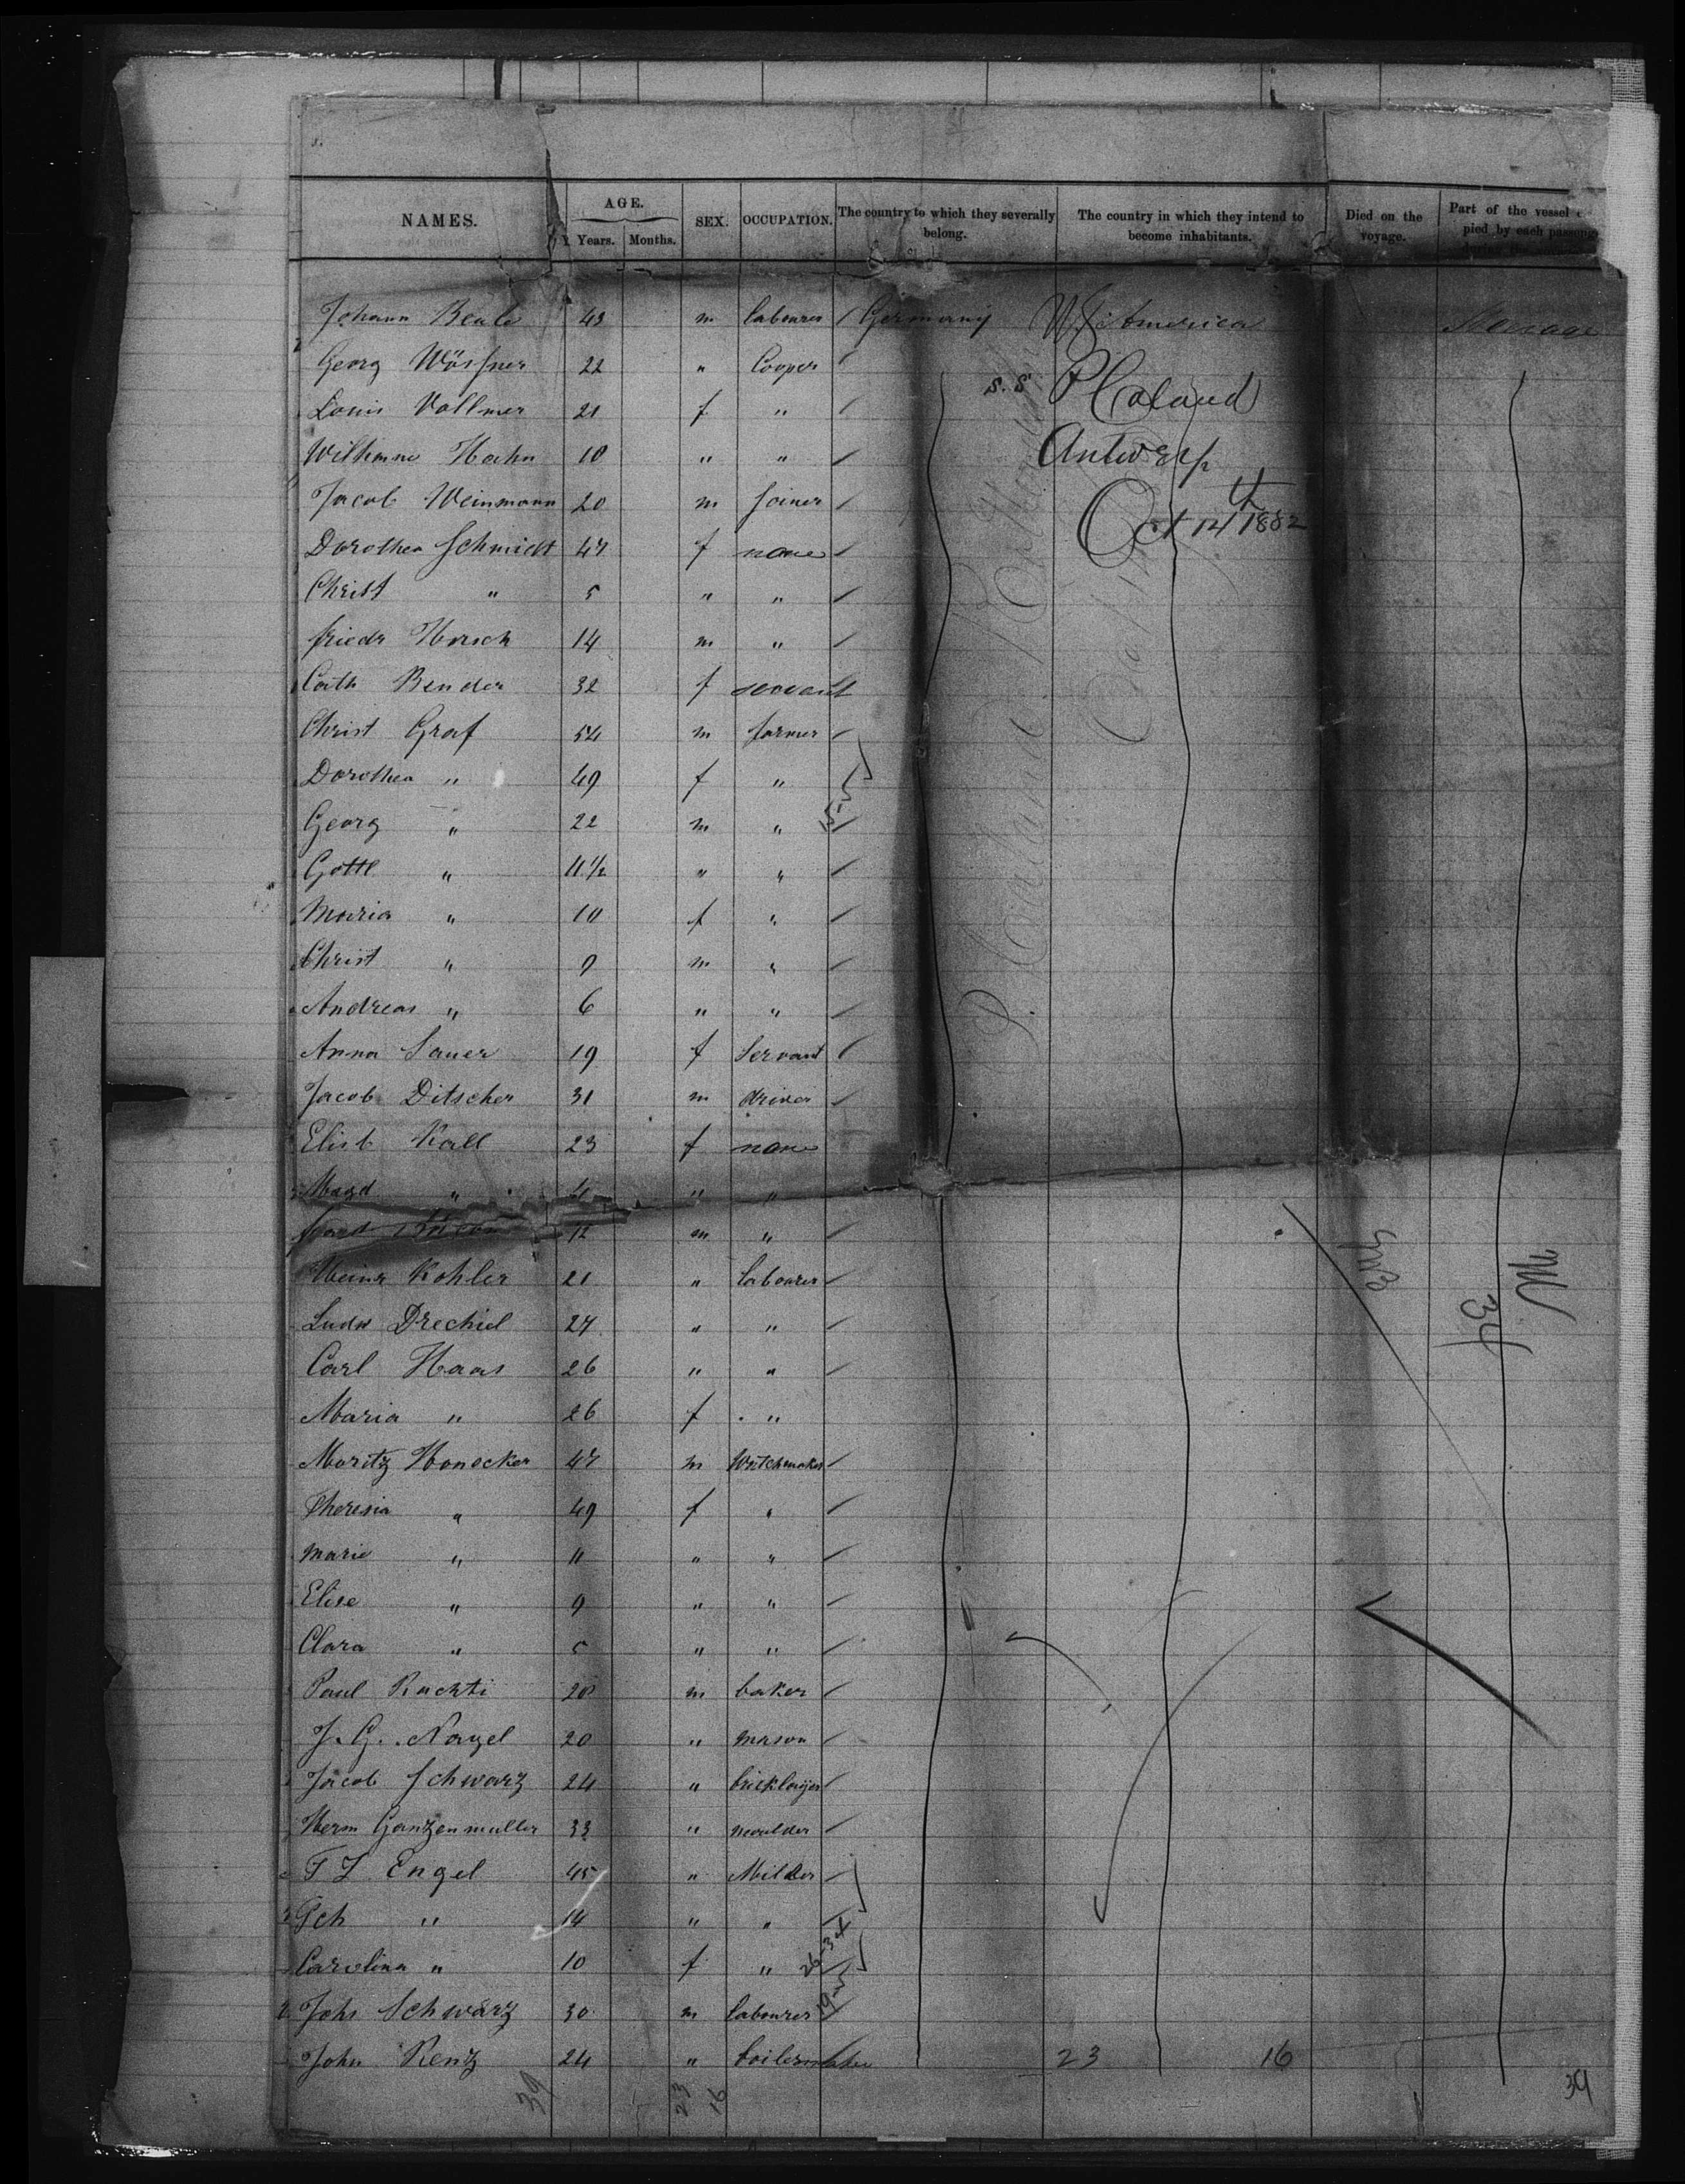 NAMES. AGE. SEX. OCCUPATION. The country to which they severally belong. The country in which they intend to become inhabitants. Died on the voyage. Part of the vessel
Years. Months. pied by each
Johann 43 m labourer Germany America
Georg 22 " Cooper
s.s P Caland
Louis Vollmer 21 f "
Antwerp
Hahn 10 " "
Jacob Weinmann 20 m joiner
Oct 14th 1882
Dorothea Schmidt 47 f none
Christ " 5 " "
friedr Horsch 14 m "
Cath Bender 32 f servant
Christ Graf 54 m farmer
Dorothea " 49 f "
Georg " 22 m "
Gottl " 11 1/2 " "
Maria " 10 f "
Christ " 9 m "
Andreas " 6 " "
Anna Sauer 19 f Servant
Jacob Ditscher 31 m driver
Elisb Kall 23 f none
Magd " " "
12 m "
Heinr Kohler 21 " labourer
Ludw Drechiel 27 " "
Carl Haas 26 " "
Maria " 26 f "
Moritz Honecker 47 m Watchmaker
Theresia " 49 f "
Marie " 11 " "
Elise " 9 " "
Clara " 5 " "
Paul Rachti 20 m baker
J. G. Nagel 20 " mason
Jacob Schwarz 24 " bricklayer
Herm Ganzenmuller 33 " moulder
F J Engel 45 "
" 14 " "
Carolina " 10 f "
Johs Schwarz 30 m labourer
John Renz 24 " boilermaker 23 16
39 23 16 39